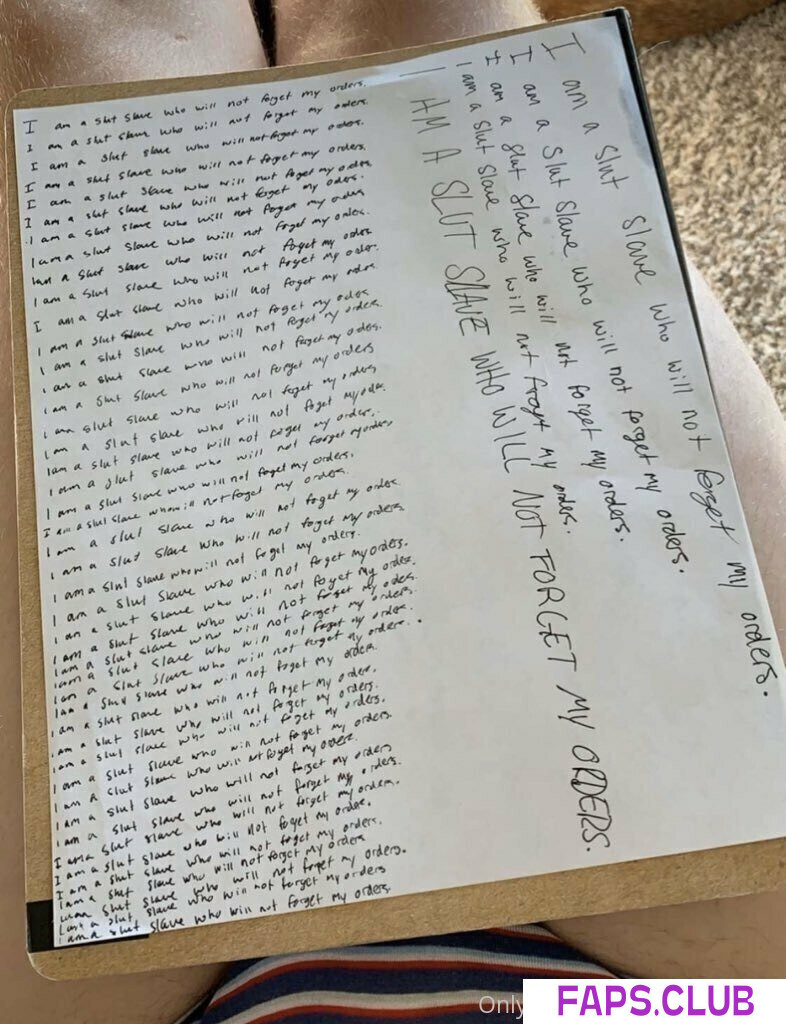 I am a slut slave who will not forget my orders.
I am a slut slave who will not forget my orders.
I am a slut slave who will not forget my orders.
I am a slut slave who will not forget my orders.
I am a slut slave who will not forget my orders.
I am a slut slave who will not forget my orders.
I am a slut slave who will not forget my orders.
I am a slut slave who will not forget my orders.
I am a slut slave who will not forget my orders.
I am a slut slave who will not forget my orders.
I am a slut slave who will not forget my orders.
I am a slut slave who will not forget my orders
I am a slut slave who will not forget my orders.
I am a slut slave who will not forget my orders.
I am a slut slave who will not forget my orders
I am a slut slave who will not forget my orders
I am a slut slave who will not forget my orders.
I am a slut slave who will not forget my orders.
I am a slut slave who will not forget my orders
I am a slut slave who will not forget my orders.
I am a slut slave who will not forget my orders.
I am a slut slave who will not forget my orders.
I am a slut slave who will not forget my orders.
I am a slut slave who will not forget my orders.
I am a slut slave who will not forget my orders.
I am a slut slave who will not forget my orders.
I am a slut slave who will not forget my orders.
I am a slut slave who will not forget my orders.
I am a slut slave who will not forget my orders.
I am a slut slave who will not forget my orders.
I am a slut slave who will not forget my orders
I am a slut slave who will not forget my orders.
I am a slut slave who will not forget my orders.
I am a slut slave who will not forget my orders.
I am a slut slave who will not forget my orders.
I am a slut slave who will not forget my orders.
I am a slut slave who will not forget my orders
I am a slut slave who will not forget my orders.
I am a slut slave who will not forget my orders.
I am a slut slave who will not forget my orders.
I am a slut slave who will not forget my orders.
I am a slut slave who will not forget my orders
I am a slut slave who will not forget my orders.
I am a slut slave who will not forget my orders
I am a slut slave who will not forget my orders.
I am a slut slave who will not forget my orders.
I am a slut slave who will not forget my orders.
I am a slut slave who will not forget my orders.
I am a slut slave who will not forget my orders.
I AM A SLUT SLAVE WHO WILL NOT FORGET MY ORDERS.
Only
FAPS.CLUB